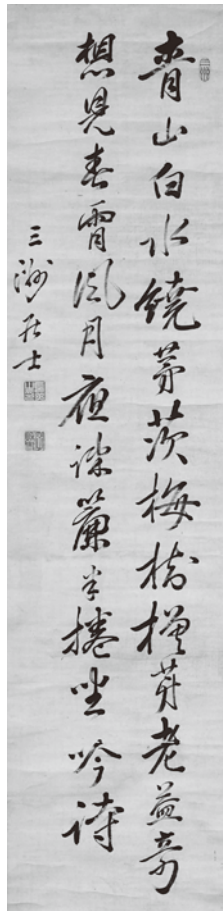 青山白水繞茅茨梅樹槎牙老益奇
想見春宵風月夜疎簾半捲坐吟詩
三洲居士